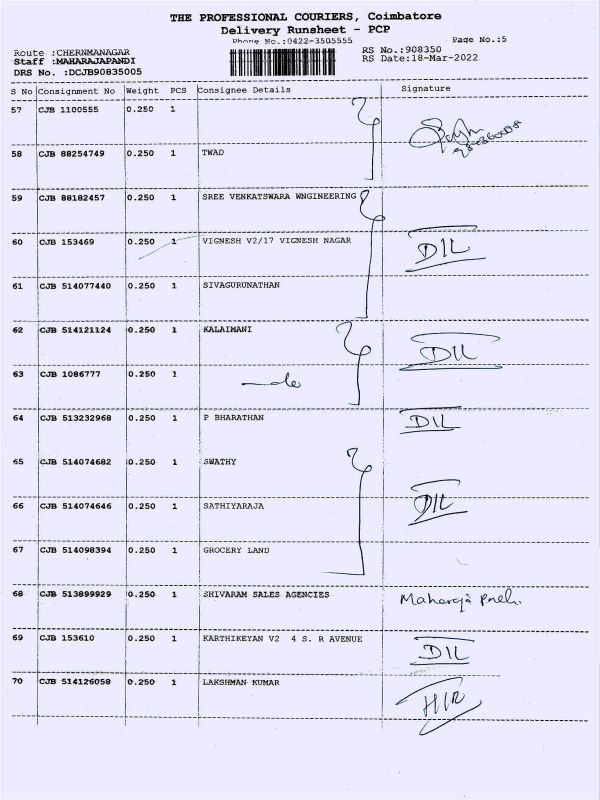 THE PROFESSIONAL COURIERS, Coimbatore
Delivery Runsheet - PCP
Phone No.:0422-3505555
Page No.:5
Route :CHERNMANAGAR
RS No.:908350
Staff :MAHARAJAPANDI
RS Date:18-Mar-2022
DRS No. :DCJB90835005
S No Consignment No Weight PCS Consignee Details Signature
57 CJB 1100555 0.250 1
58 CJB 88254749 0.250 1 TWAD
59 CJB 88182457 0.250 1 SREE VENKATSWARA WNGINEERING
60 CJB 153469 0.250 1 VIGNESH V2/17 VIGNESH NAGAR DIL
61 CJB 514077440 0.250 1 SIVAGURUNATHAN
62 CJB 514121124 0.250 1 KALAIMANI DIL
63 CJB 1086777 0.250 1 do
64 CJB 513232968 0.250 1 P BHARATHAN DIL
65 CJB 514074682 0.250 1 SWATHY
66 CJB 514074646 0.250 1 SATHIYARAJA DIL
67 CJB 514098394 0.250 1 GROCERY LAND
68 CJB 513899929 0.250 1 SHIVARAM SALES AGENCIES Maharaja
69 CJB 153610 0.250 1 KARTHIKEYAN V2 4 S. R AVENUE DIL
70 CJB 514126058 0.250 1 LAKSHMAN KUMAR HIR